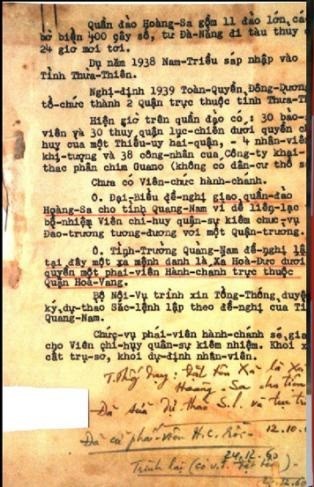 Quần đảo Hoàng-Sa gồm 11 đảo lớn, cá
bờ biển 400 cây số, từ Đà-Nẵng đi tàu thủy
24 giờ mới tới.
Dụ năm 1938 Nam-Triều sáp nhập vào
Tỉnh Thừa-Thiên.
Nghị-định 1939 Toàn-Quyền Đông-Dương
tổ-chức thành 2 Quận trực thuộc tỉnh Thừa-Th
Hiện giờ trên quần đảo có : 30 bảo-
viên và 30 thủy quân lục-chiến dưới quyền ch
huy của một Thiếu-úy hải-quân, - 4 nhân-viên
khí-tượng và 38 công-nhân của Công-ty khai-
thác phân chim Guano (không có dân-cư thổ s
Chưa có Viên-chức hành-chánh.
Ô. Đại-Biểu đề-nghị giao quần-đảo
Hoàng-Sa cho tỉnh Quảng-Nam vì dễ liên-lạc
bổ-nhiệm Viên chỉ-huy quân-sự kiêm chức-vụ
Đảo-trưởng tương-đương với một Quận-trưởng.
Ô. Tỉnh-Trưởng Quảng-Nam đề-nghị lậ
tại đây một xã mệnh danh là Xã Hoà-Đức dưới
quyền một phái-viên Hành-chánh trực thuộc
Quận Hoà-Vang.
Bộ Nội-Vụ trình xin Tổng-Thống duyệ
ký dự-thảo Sắc-lệnh lập theo đề-nghị của Tỉ
Quảng-Nam.
Chức-vụ phái-viên hành-chánh sẽ gia
cho Viên chỉ-huy quân-sự kiêm-nhiệm. Khỏi x
cất trụ-sở, khỏi dự-định nhân-viên.
Đặt tên Xã là Xã
Hoàng-Sa cho tiện
Đã sửa dự thảo S.l. và
12.10.
Đã cử phái-viên H.C. rồi -
24.12.60
Trình lại